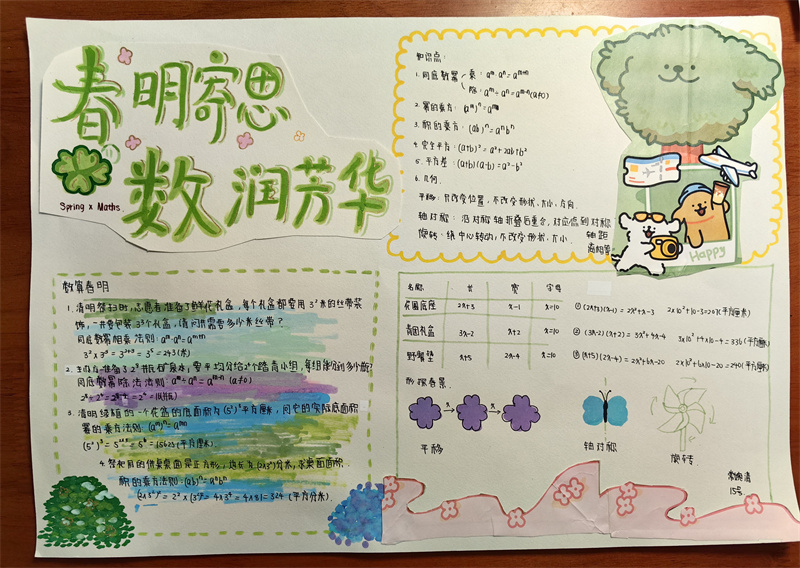 春明寄思
数润芳华
Spring x Maths
知识点:
1. 同底数幂 乘: aᵐ·aⁿ=aᵐ⁺ⁿ
除: aᵐ÷aⁿ=aᵐ⁻ⁿ(a≠0)
2. 幂的乘方: (aᵐ)ⁿ=aᵐⁿ
3. 积的乘方: (ab)ⁿ=aⁿbⁿ
4. 完全平方: (a+b)²=a²+2ab+b²
5. 平方差: (a+b)(a-b)=a²-b²
6. 几何.
平移: 只改变位置, 不改变形状, 大小, 方向.
轴对称: 沿对称轴折叠后重合, 对应点到对称轴距离相等
旋转: 绕中心转动, 不改变形状, 大小.
Happy
数算春明
1. 清明祭扫时, 志愿者准备了鲜花礼盒, 每个礼盒都要用3²米的丝带装
饰, 一共要包装3³个礼盒, 请问共需要多少米丝带?
同底数幂相乘法则: aᵐ·aⁿ=aᵐ⁺ⁿ
3²×3³=3²⁺³=3⁵=243(米)
同底数幂除法法则: aᵐ÷aⁿ=aᵐ⁻ⁿ (a≠0)
3. 清明绿植的一个花盆的底面积为(5²)³平方厘米, 问它的实际底面积
幂的乘方法则: (aᵐ)ⁿ=aᵐⁿ
(5²)³=5²ˣ³=5⁶=15625(平方厘米)
积的乘方法则: (ab)ⁿ=aⁿbⁿ
(2×3²)²=2²×(3²)²=4×3⁴=4×81=324(平方分米)
名称 长 宽 字母
花圃底座 2x+3 x-1 x=10 ①(2x+3)(x-1)=2x²+x-3 2×10²+10-3=207(平方厘米)
青团礼盒 3x-2 x+2 x=10 ②(3x-2)(x+2)=3x²+4x-4 3×10²+4×10-4=336(平方厘米)
野餐垫 x+5 2x-4 x=10 ③(x+5)(2x-4)=2x²+6x-20 2×10²+6×10-20=240(平方厘米)
形探春景.
平移 轴对称 旋转
15号